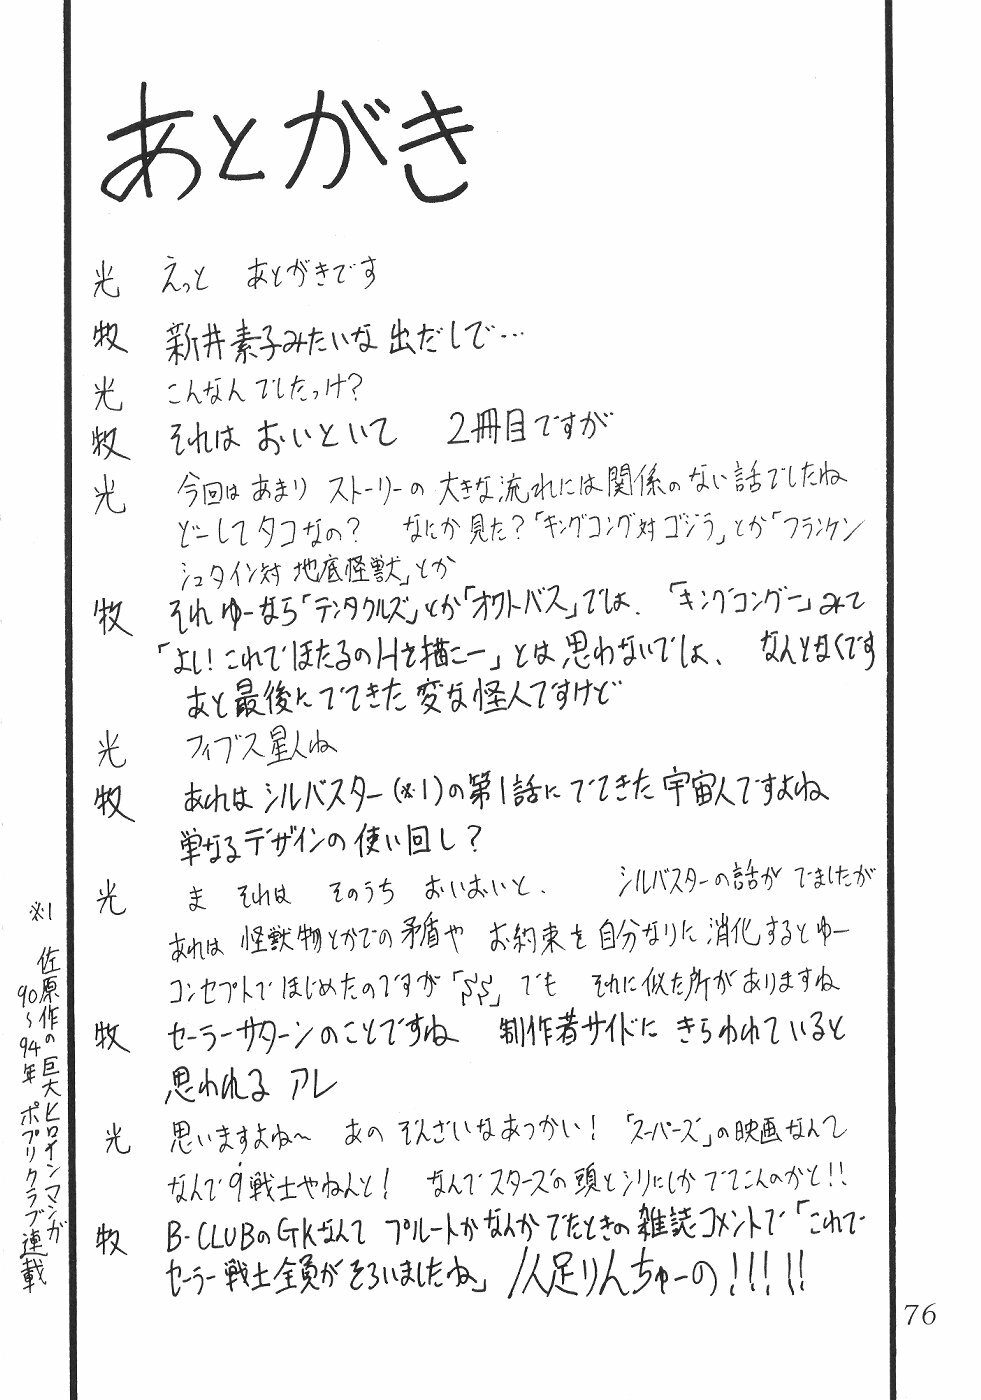 あとがき
光 えっと あとがきです
牧 新井素子みたいな出だしで…
光 こんなんでしたっけ?
牧 それは おいといて 2冊目ですが
光 今回は あまり ストーリーの 大きな流れには関係のない話でしたね
どーしてタコなの? なにか見た?「キングコング対ゴジラ」とか「フランケン
シュタイン対 地底怪獣」とか
牧 それ ゆーなら「テンタクルズ」とか「オクトパス」では、「キングコングー」みて
「よし!これでほたるのHを描こー」とは思わないでしょ、なんとなくです
あと最後にでてきた変な怪人ですけど
光 フィブス星人ね
牧 あれはシルバスター(※1)の第1話にでてきた宇宙人ですよね
単なるデザインの使い回し?
光 ま それは そのうち おいおいと、 シルバスターの話が でましたが
あれは 怪獣物とかでの矛盾や お約束を自分なりに消化するとゆー
コンセプトではじめたのですが「SS」でも それに似た所がありますね
牧 セーラーサターンのことですね 制作者サイドに きらわれていると
思われる アレ
光 思いますよね〜 あの ぞんざいなあつかい!「スーパーズ」の映画なんて
なんで9戦士やねんと! なんでスターズの頭とシリにしかでてこんのかと!!
牧 B-CLUBのGKなんて プルートかなんかでたときの雑誌コメントで「これで
セーラー戦士全員がそろいましたね」1人足りんちゅーの!!!!!
※1 佐原作の巨大ヒロインマンガ
90〜94年 ポプリクラブ連載
76